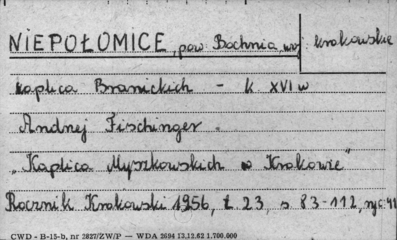 NIEPOŁOMICE, pow. Bochnia, woj. krakowskie
kaplica Branickich - k. XVI w
Andrzej Fischinger.
"Kaplica Myszkowskich w Krakowie"
Rocznik Krakowski 1956, t. 23, s 83-112, ryc. 41
CWD - B-15-b, nr 2827/ZW/P — WDA 2694 13.12.62 1.700.000